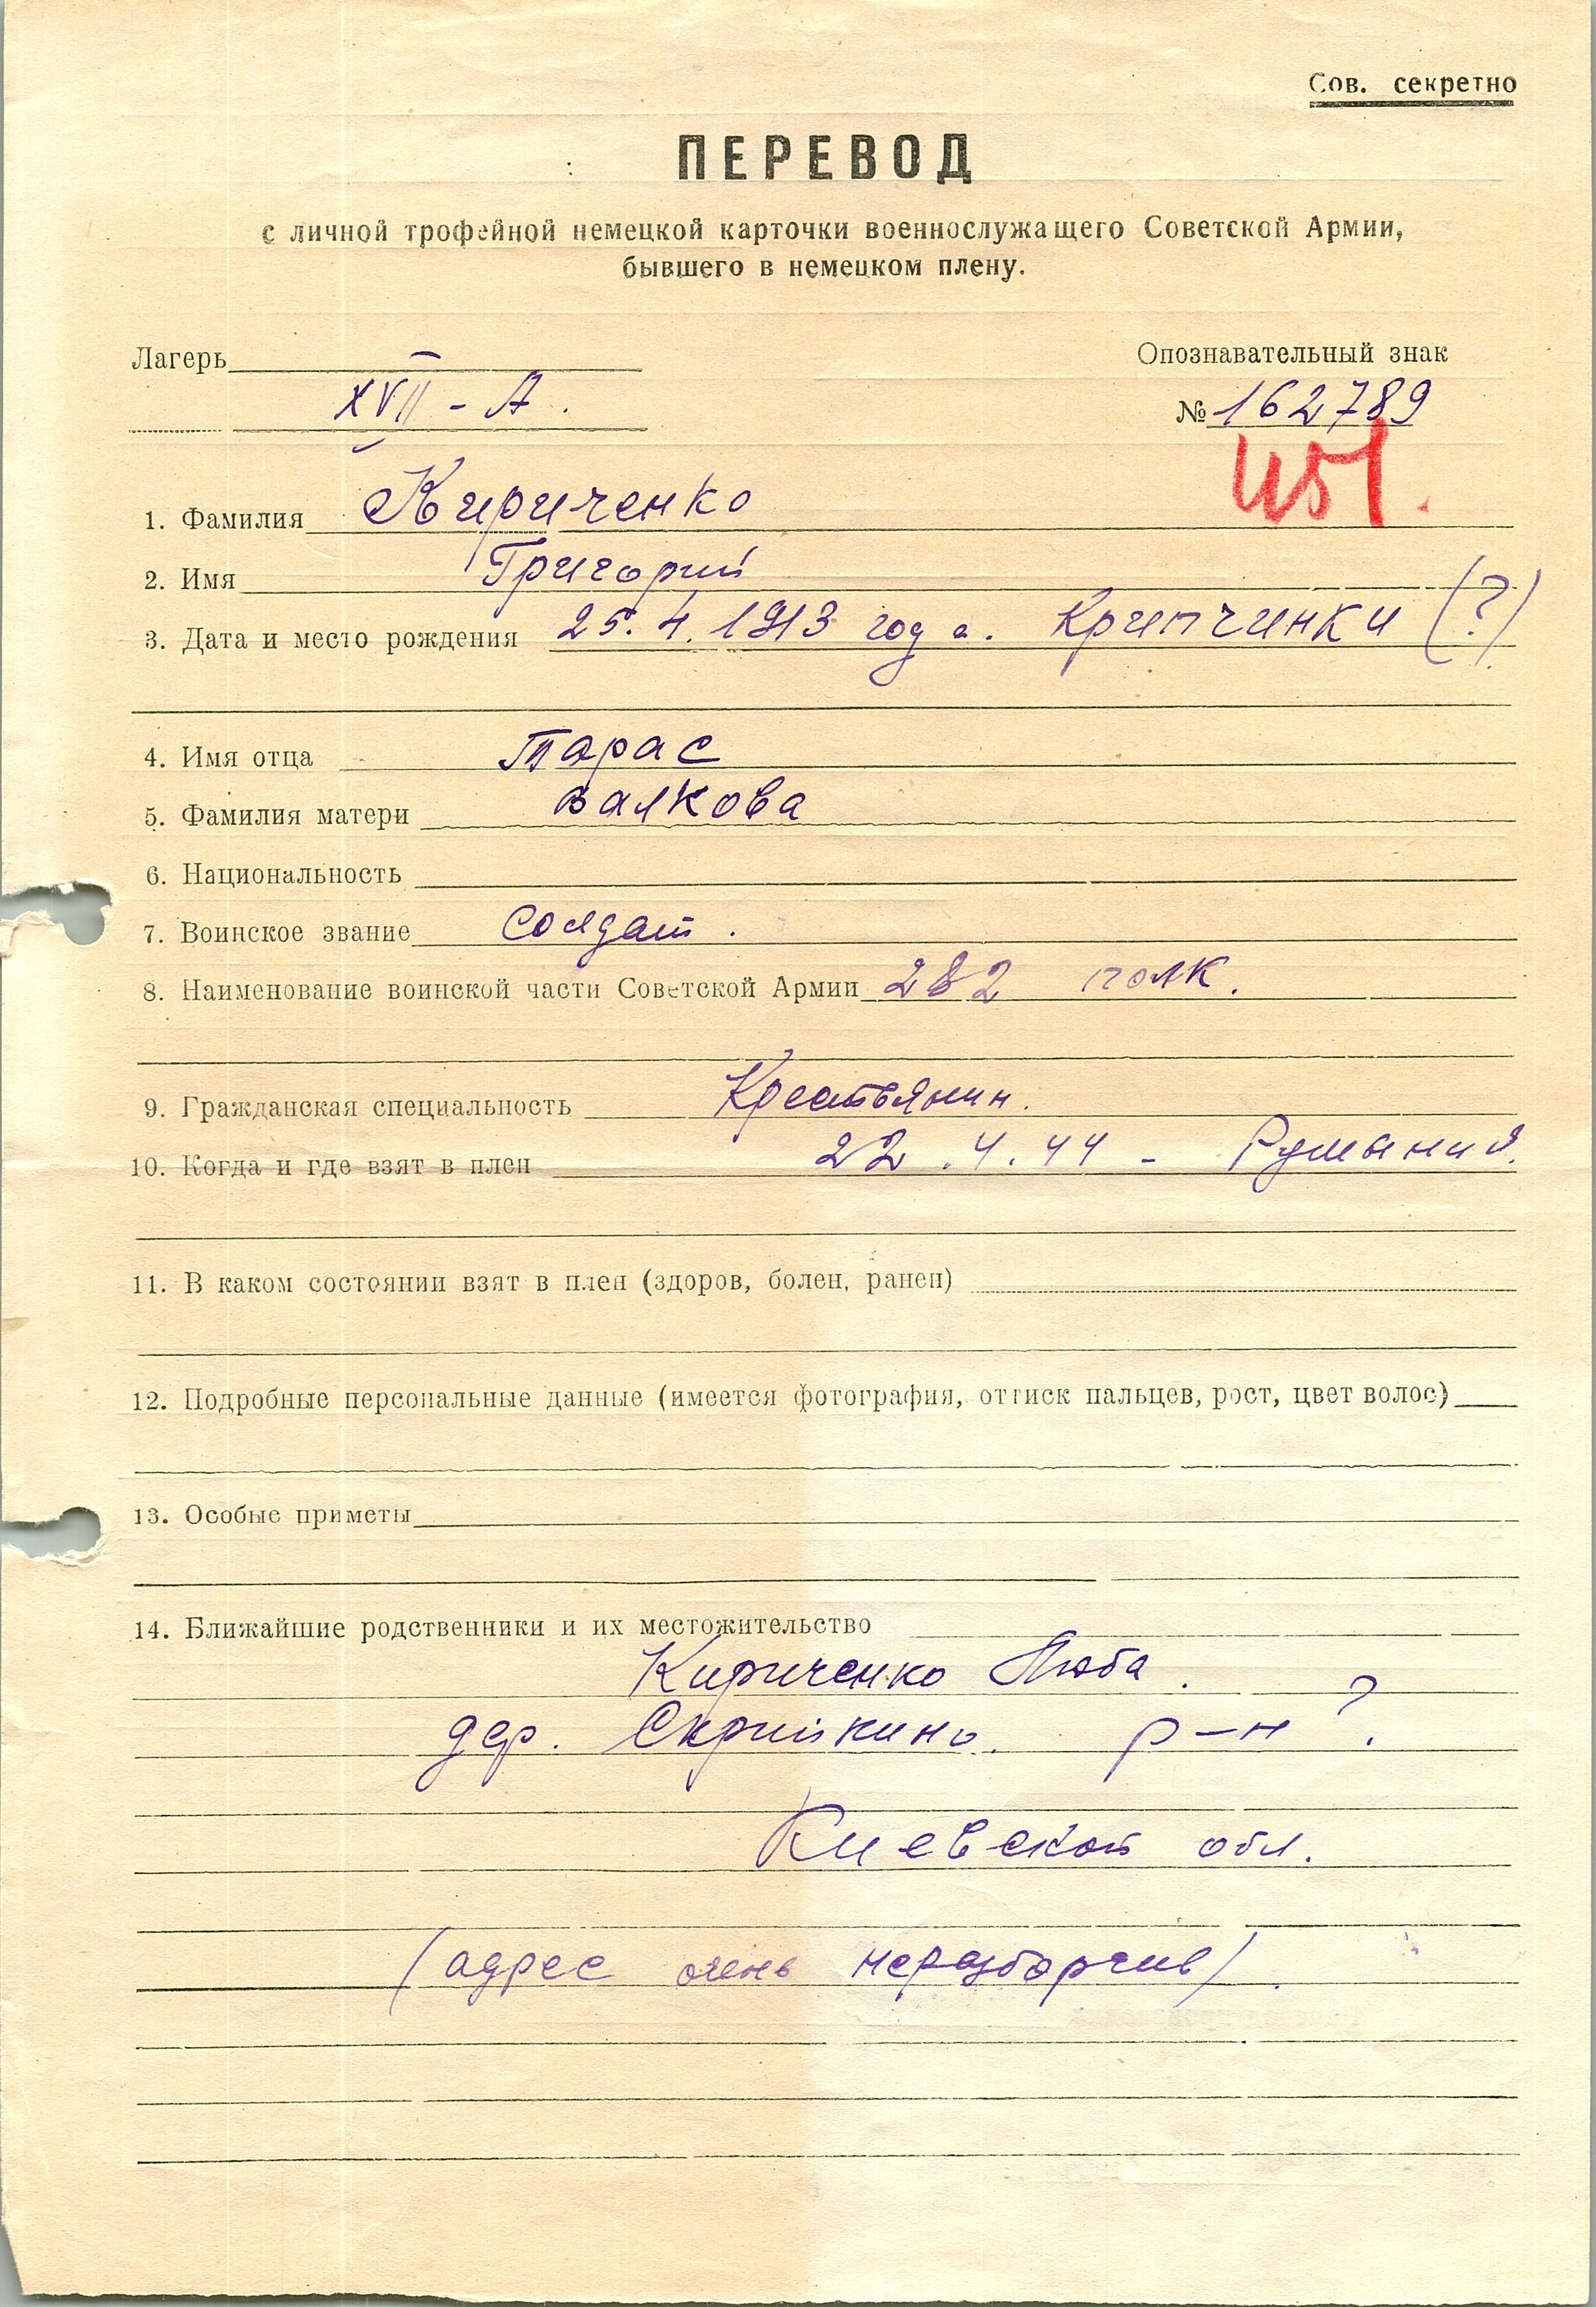 Сов. секретно
ПЕРЕВОД
с личной трофейной немецкой карточки военнослужащего Советской Армии,
бывшего в немецком плену.
Лагерь
Опознавательный знак
XVII - А.
№ 162789
1. Фамилия Кириченко
2. Имя Григорий
3. Дата и место рождения 25.4.1913 года. Крипчинки (?)
4. Имя отца Тарас
5. Фамилия матери Валкова
6. Национальность
7. Воинское звание солдат.
8. Наименование воинской части Советской Армии 282 полк.
9. Гражданская специальность Крестьянин.
10. Когда и где взят в плен 22.4.44 - Румыния.
11. В каком состоянии взят в плен (здоров, болен, ранен)
12. Подробные персональные данные (имеется фотография, оттиск пальцев, рост, цвет волос)
13. Особые приметы
14. Ближайшие родственники и их местожительство
Кириченко Люба.
дер. Скрийкино. р-н ?
Киевской обл.
(адрес очень неразборчив).